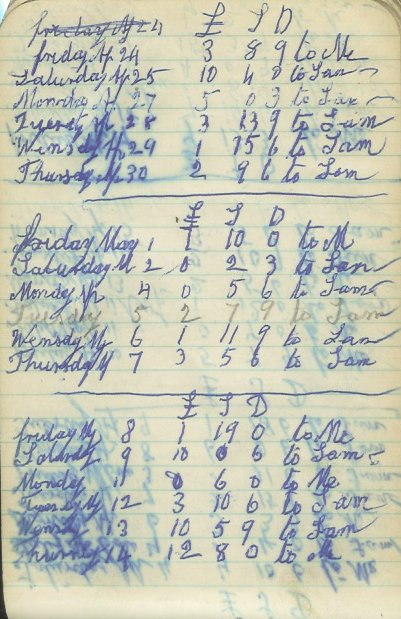 friday Ap 24 £ S D
friday Ap 24 3 8 9 to Me
Saturday Ap 25 10 4 0 to Sam
Monday Ap 27 5 0 3 to Sam
Tuesdy Ap 28 3 13 9 to Sam
Wensdy Ap 29 1 15 6 to Sam
Thursdy Ap 30 2 9 6 to Sam
£ S D
friday May 1 1 10 0 to M
Saturday M 2 0 2 3 to Sam
Monday M 4 0 5 6 to Sam
Tuesday 5 2 7 9 to Sam
Wensdy My 6 1 11 9 to Sam
Thursdy M 7 3 5 6 to Sam
£ S D
friday My 8 1 19 0 to Me
Saturdy 9 10 0 6 to Sam
Monday 11 0 6 0 to Me
Tuesdy M 12 3 10 6 to Sam
Wensdy 13 10 5 9 to Sam
Thursdy 14 12 8 0 to Me